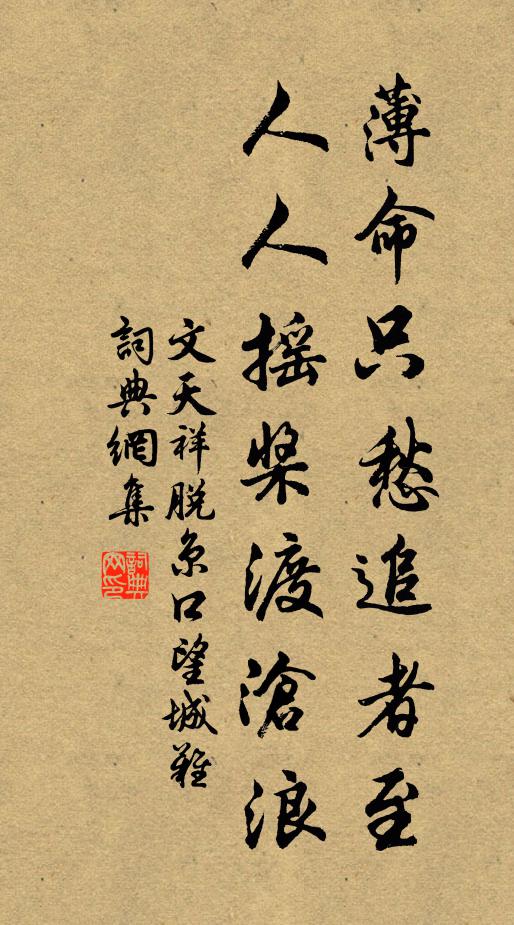 薄命只愁追者至
人人摇桨渡滄浪
文天祥脱京口望城難
詞典網集
詞典網印